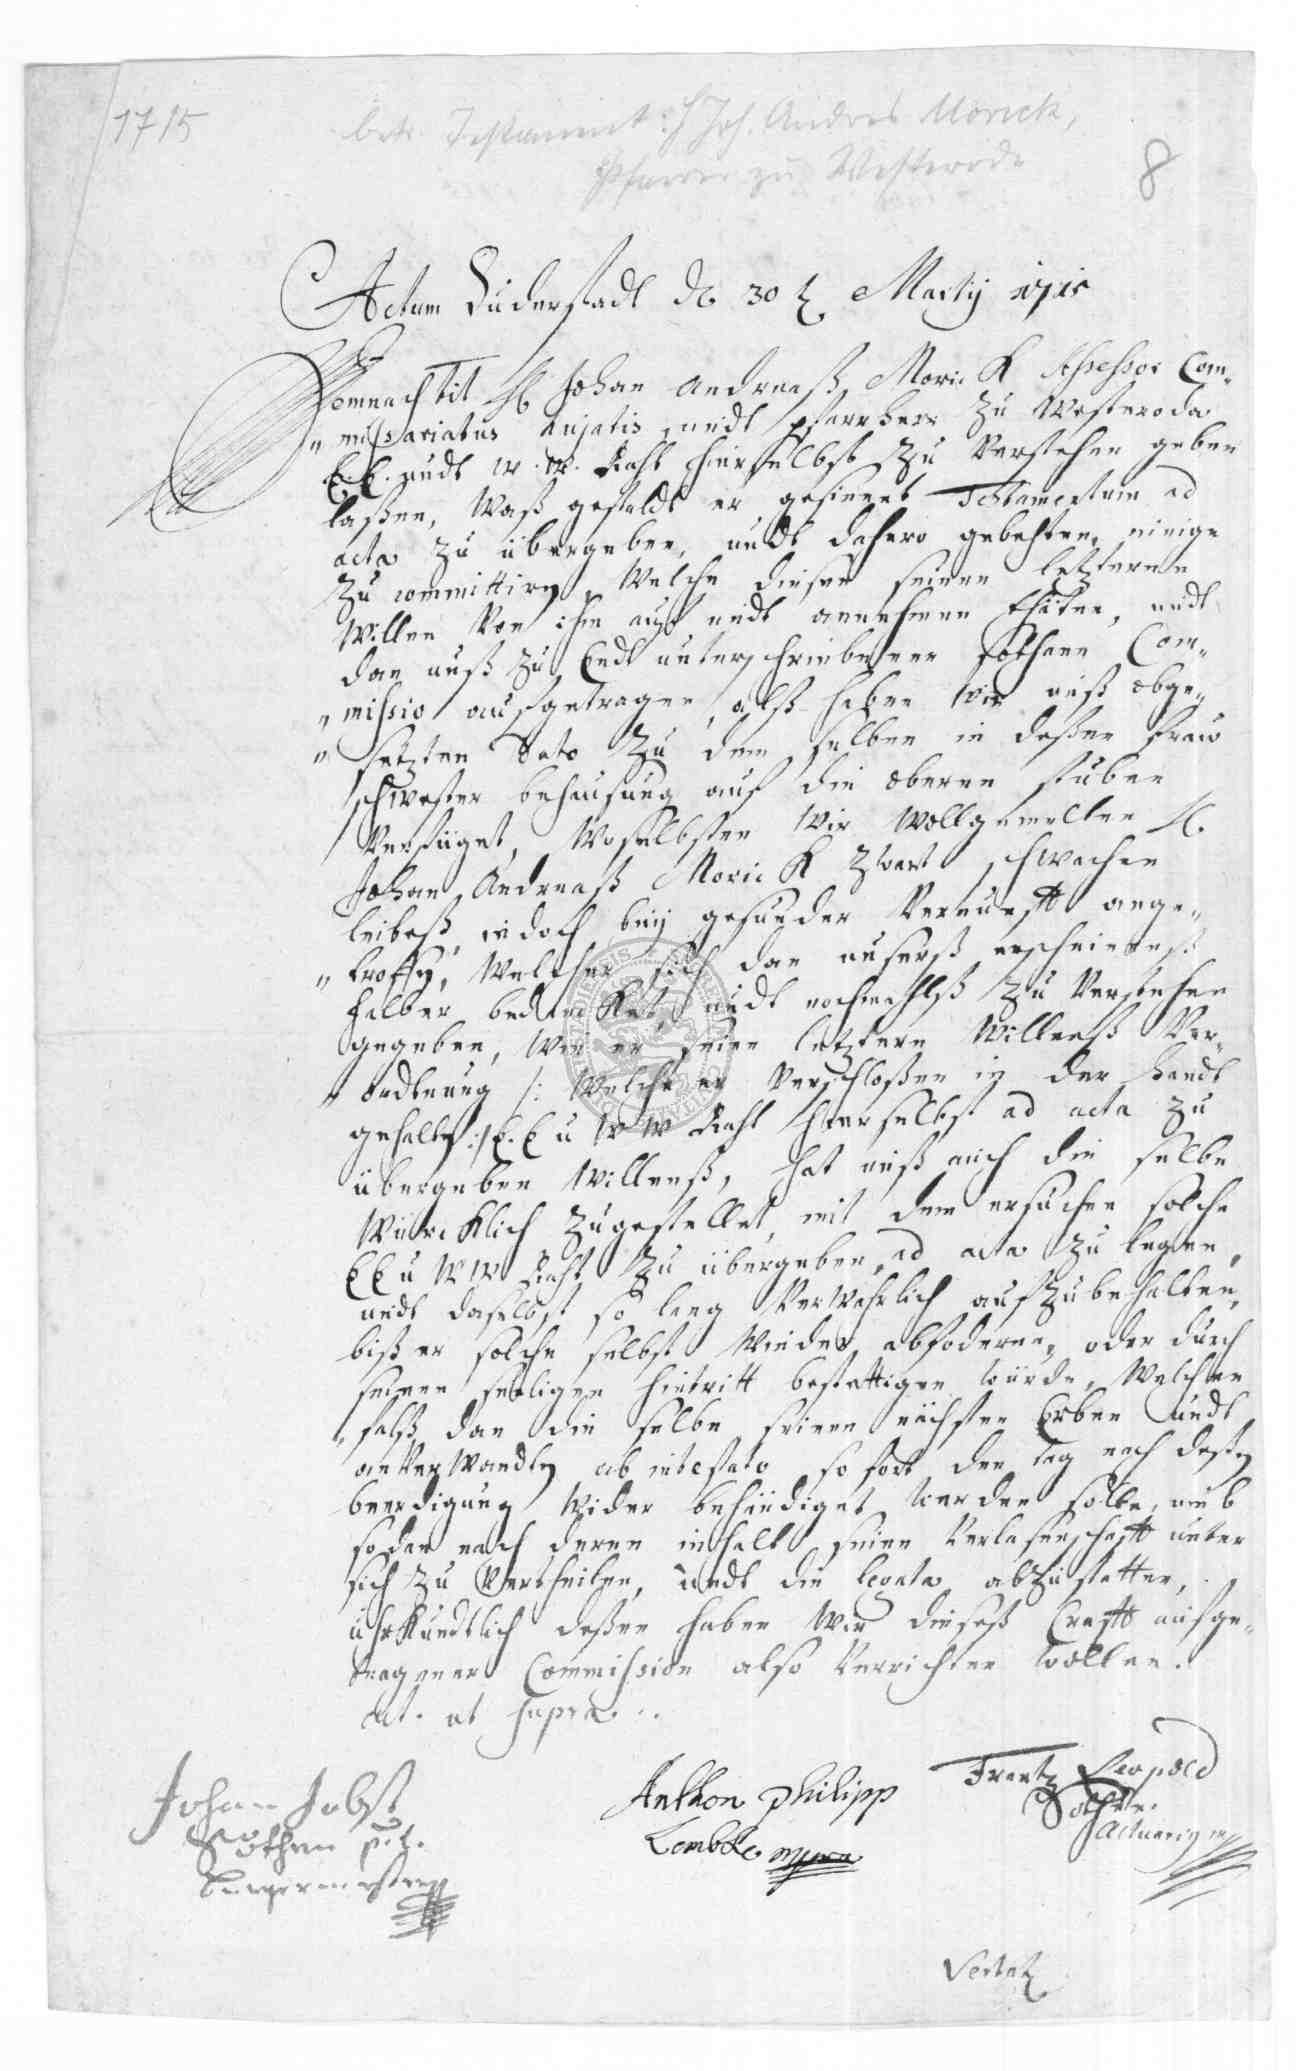 1715
betr. Testament: H Joh. Andres Morick,
Pfarrer zu Westerode
8
Actum Duderstadt d. 30 t. Martij 1715
Demnach tit H Johan Andreaß Morick Assessor Com-
missariatus undt pfarrherr zu Westeroda
E. E. undt w. w. Raht hierselbst zu Verstehen geben
laßen, Waß gestaldt er gesinnet Testamentum ad
acta zu übergeben, undt dahero gebehten, einige
zu committiren, Welche diesen seinen letzteren
Willen Von ihm auf undt annehmen thäten, undt
dan unß zu Endt unterschriebenen sothane Com-
missio aufgetragen, alß haben Wir unß obge-
setzten dato zu dem selben in deßen fraw
schwester behausung auf die obere stuben
Verfüget, Woselbsten Wir Wollgemelten H.
Johan Andreaß Morick zwart schwachen
leibeß, iedoch beij gesunder Vernunfft ange-
troffen, Welcher sich dan unserß erscheinenß
halber bedancket, undt nochmahlß zu Verstehen
gegeben, Wie er seine letztere Willenß Ver-
ordtnung /: Welche er Verschloßen in der handt
gehalten :/ E. E u W W Raht hierselbst ad acta zu
übergeben Willenß, hat unß auch die selbe
Würcklich zugestellet, mit dem ersuchen solche
E E u W W Raht zu übergeben, ad acta zu legen,
undt daselbst so lang Verwahrlich aufzubehalten,
biß er solche selbst Wieder abfoderen, oder durch
seinen seeligen hintritt bestattigen würde, Welchen
falß dan die selbe seinen nächsten Erben undt
anVerWandten ab intestato so fort den tag nach deßen
beerdigung Wider behändiget werden solte, umb
sodan nach deren inhalt seine Verlaßenschafft unter
sich zu Vertheilen, undt die legata abzustatten,
Uhrkundtlich deßen haben Wir dieseß Crafft aufge-
tragener Commission also Verrichten wollen.
act. ut supra.
Johan Jobst
Sothen
Burgermeister
Anthon Philipp
Lembke mpria
Frantz Leopold
Sothen.
Actuarius
Vertatur